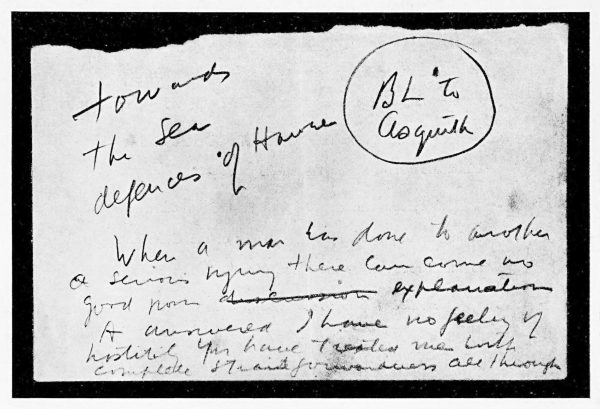 towards
the sea
defences of Havre
BL to
Asquith
When a man has done to another
a serious injury there can come no
good from discussion explanation
A answered I have no feeling of
hostility You have treated me with
complete straightforwardness all through